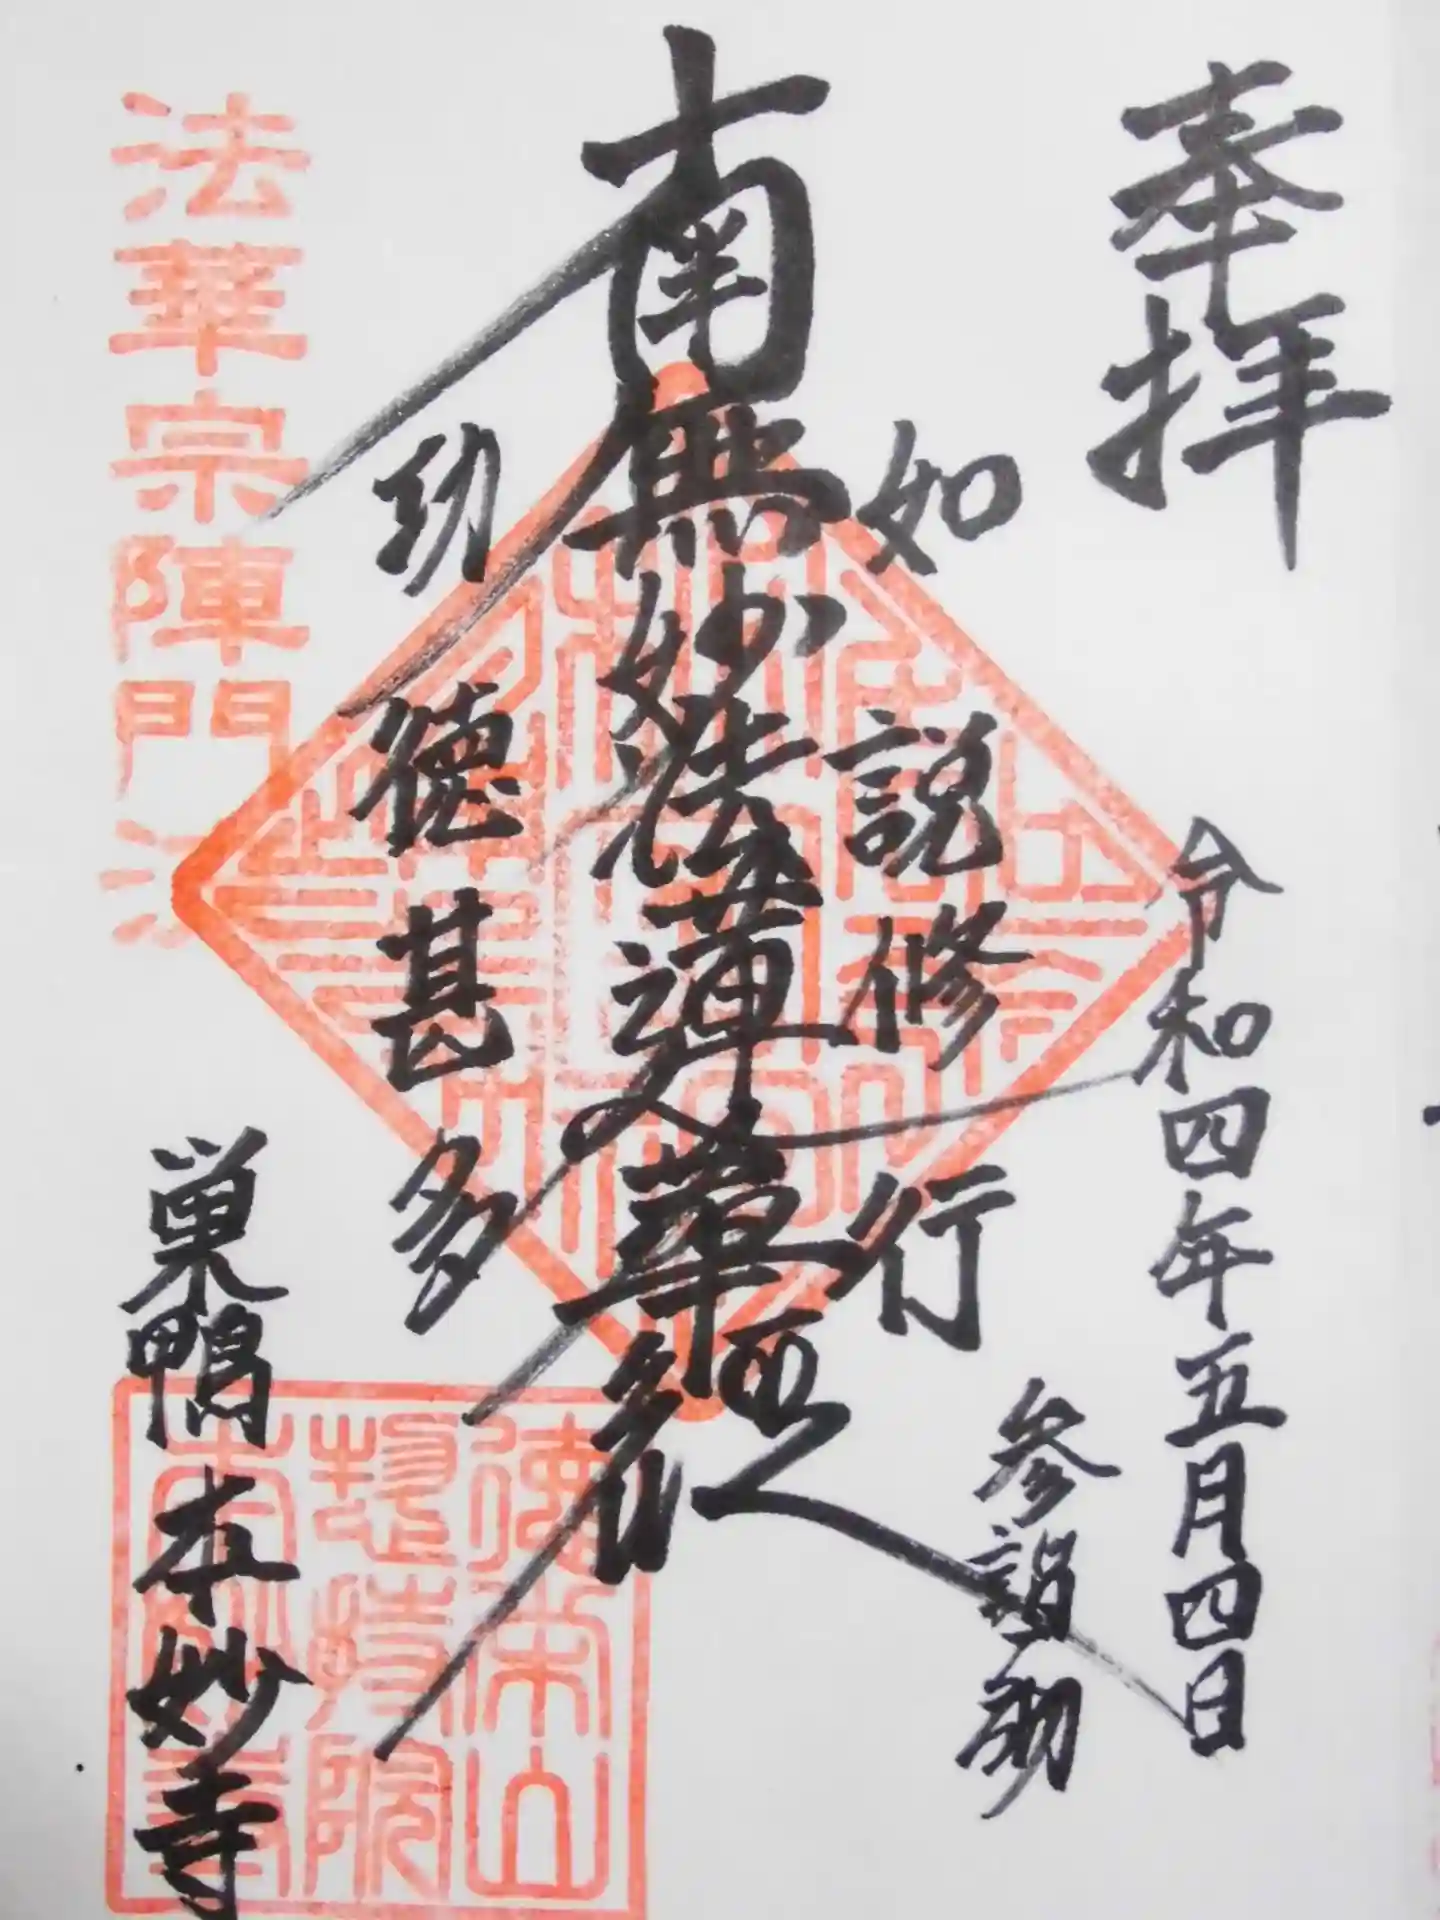 奉拝
令和四年五月四日
参詣
如説修行
南無妙法蓮華経
功徳甚多
巣鴨本妙寺
法華宗陣門流
徳栄山
惣持院
本妙寺